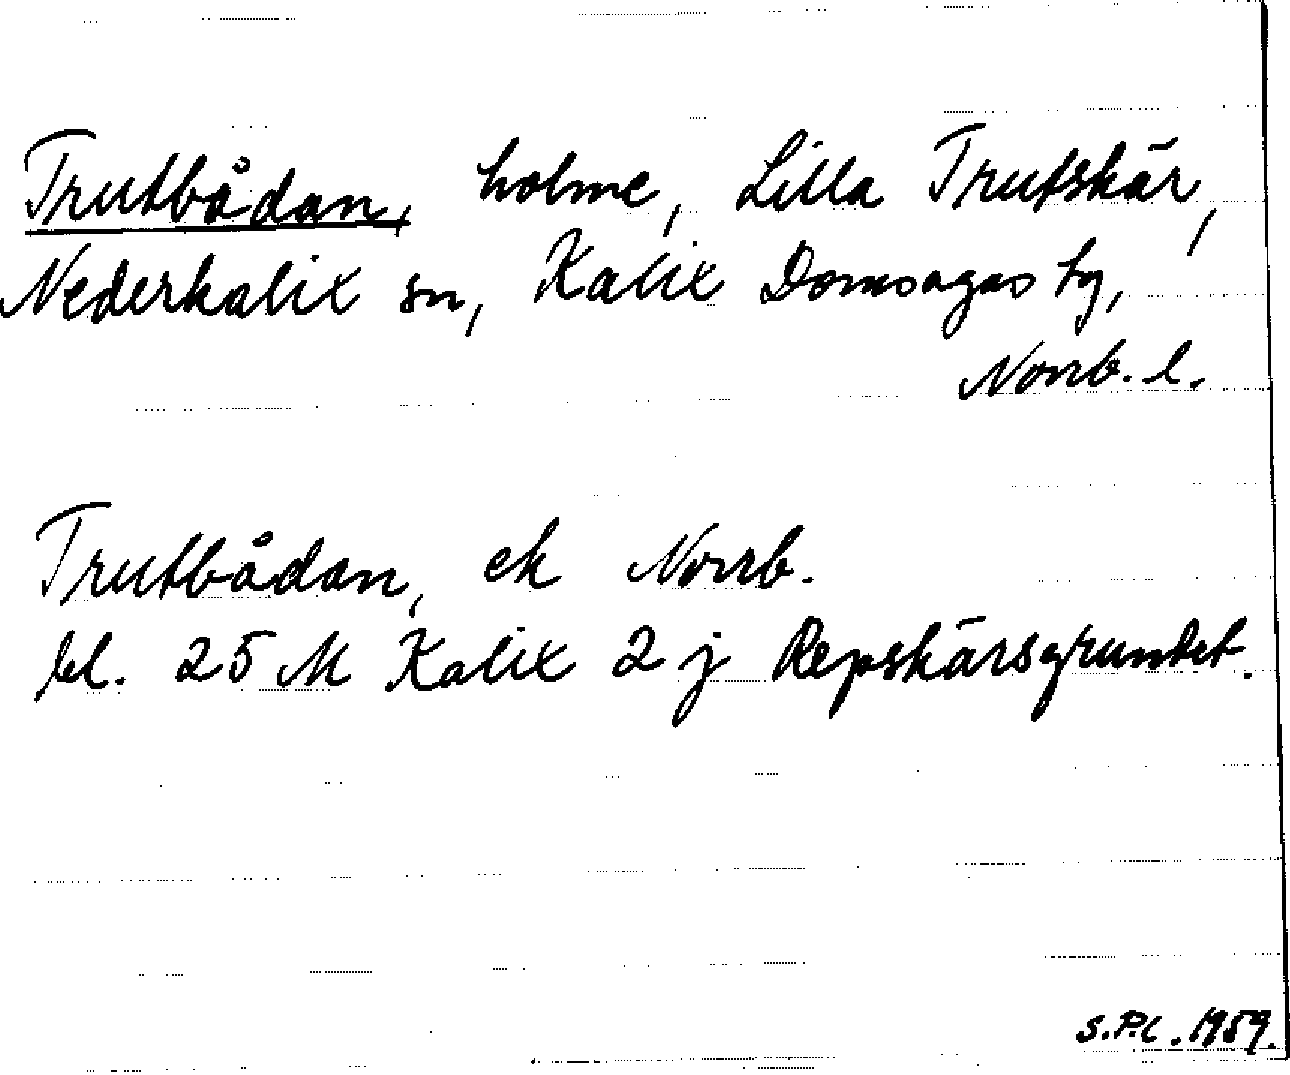 Trutbådan, holme, Lilla Trutskär,
Nederkalix sn, Kalix Domsagas tg,
Norrb. l.
Trutbådan, ek Norrb.
bl. 25 M Kalix 2 j Repskärsgrundet.
S.P.L. 1959.